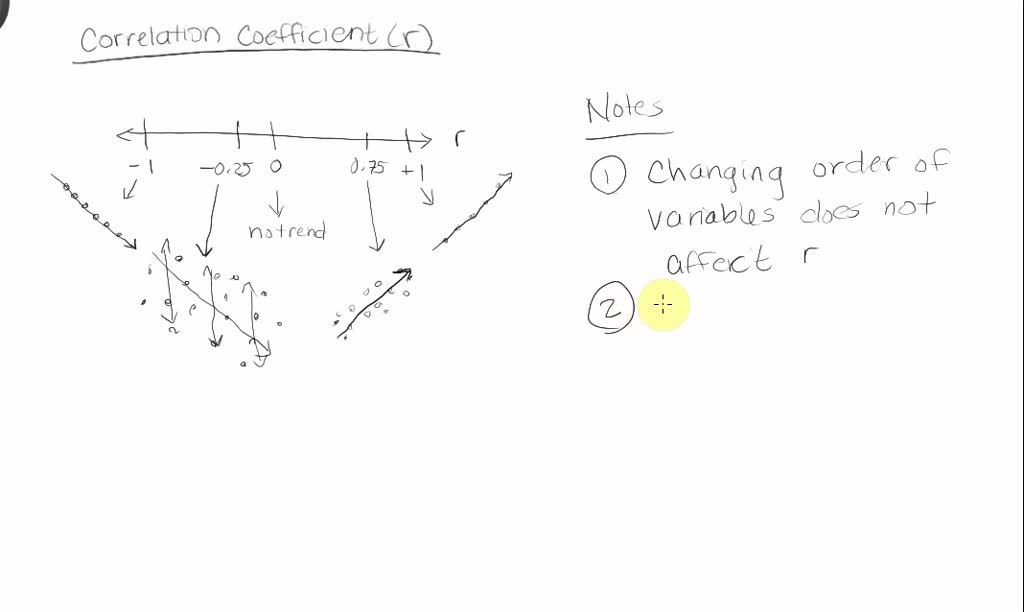 Correlation Coefficient (r)
r
-1 -0.25 0 0.75 +1
no trend
Notes
① Changing order of
variables does not
affect r
②